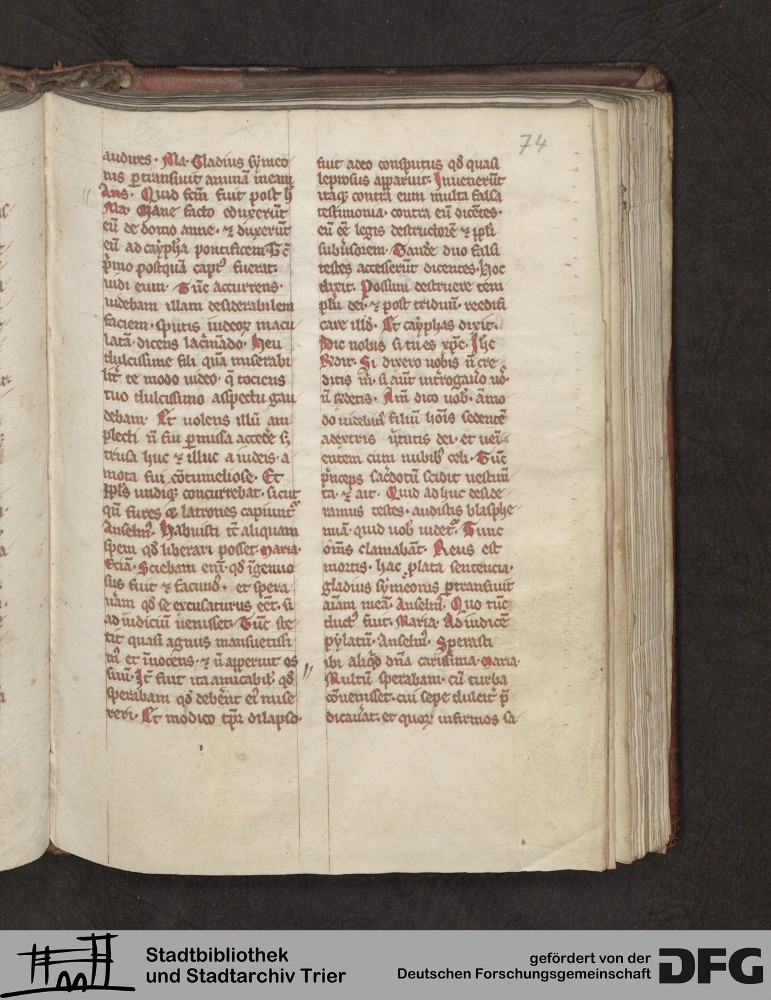 74
audires. Ma. Gladius symeo
nis ꝑtransiuit animā meam
Ans. Quid fcm̄ fuit post h̄
Ma. Mane facto eduxerūt
eū de domo anne. ⁊ duxerūt
eū ad caypha pontificem. hͨ
pͥmo postquā captꝰ fuerat.
uidi eum. Tūc accurrens
uidebam illam desiderabilem
faciem. sputis iudeoꝝ macu
latā. dicens lacͥmādo. Heu
dulcissime fili quā miserabi
lit̄ te modo uideo. q̄ tociens
tuo dulcissimo aspectu gau
debam. Et uolens illū am
plecti n̄ fui ꝑmissa accedē sꝫ
trusa huc ⁊ illuc a iudeis. a
mota fui cōtumeliose. Et
ppl̄s undiqꝫ concurrebat. sicut
qn̄ fures & latrones capiunt᷑
Anselmꝰ. Habuisti tc̄ aliquam
spem qd̓ liberari posset. Maria.
Eciā. Sciebam eni. qd̓ īgenuo
sus fuit ⁊ facundꝰ. et spera
uām qd̓ se excusaturus eēt. si
ad iudiciū uenisset. Tūc ste
tit quasi agnus mansuetissi
mꝰ et īnocens. ⁊ n̄ apperuit os
suū. It̄ fuit ita amicabil̓. qd̓
sperabam qd̓ debēnt eiꝰ mise
reri. Et modico tꝑr dilapso.
fuit adeo consputus qd̓ quasi
leprosus apparuit. Inuenerūt
itaqꝫ contra eum multa falsa
testimonia. contra eū dicētes.
eū eē legis destructorē ⁊ ppl̄i
subūsorem. Tandē duo falsi
testes accesserūt dicentes. Hoc
dixit. Possum destruere tem
plū dei. ⁊ post triduū. reedifi
care illd̓. Et cayphas dixit.
Dic nobis si tu es xp̄c. Ihc
Rdit. Si dixero uobis n̄ cre
ditis m̄. si aūt int̄rogauo uōˢ
n̄ r̄detis. Am̄ dico uob̓. āmo
do uidebitꝭ filiū hōis sedentē
adextris ūtutis dei. et ueni
entem cum nubibꝰ celi. Tūc
pͥnceps sac̄dotū scidit uestim̄
ta. ⁊ ait. Quid adhuc deside
ramus testes. audistis blasphe
miā. quid uob̓ uidet᷑. Tunc
om̄s clamabāt. Reus est
mortis. hac plata sentencia.
gladius symeonis ꝑtransiuit
aīam meā. Anselmꝰ. Quo tūc
ductꝰ fuit. Maria. Ad iudicē
pylatū. Anselmꝰ. Sperasti
ibi aliqͥd dn̄a carissima. Maria.
Multū sperabam. cū turba
cōuenisset. cui sepe dulcit̄ p̄
dicauāt. et quoꝝ infirmos sa
Stadtbibliothek
und Stadtarchiv Trier
gefördert von der
Deutschen Forschungsgemeinschaft
DFG